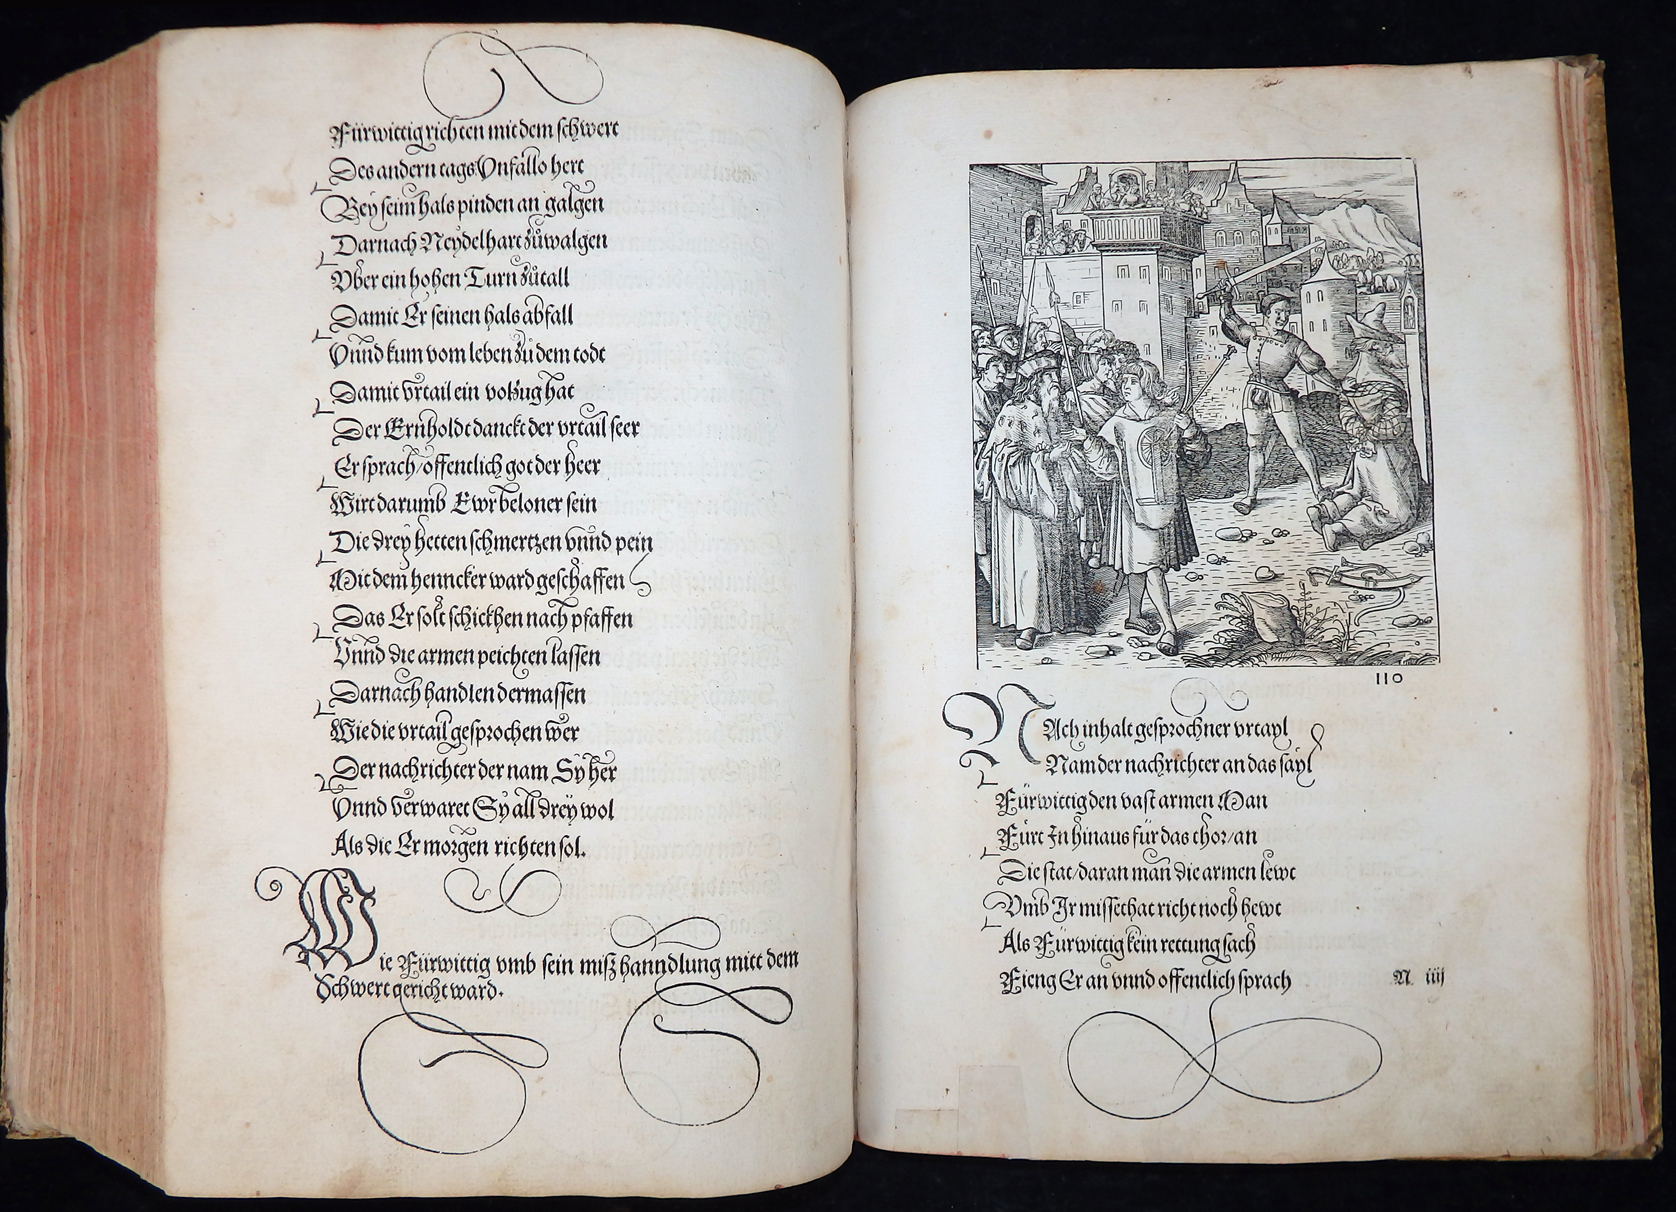 Fürwittig richten mit dem schwert
Des andern tags Vnfallo hert
Bey seim hals pinden an galgen
Darnach Neydelhart zůwalgen
Vber ein hohen Turn zůtall
Damit Er seinen hals abfall
Vnnd kum vom leben zů dem todt
Damit vrtail ein volzug hat
Der Ernholdt danckt der vrtail seer
Er sprach/offentlich got der heer
Wirt darumb Ewr beloner sein
Die drey hetten schmertzen vnnd pein
Mit dem henncker ward geschaffen
Das Er solt schickhen nach pfaffen
Vnnd die armen peichten lassen
Darnach handlen dermassen
Wie die vrtail gesprochen wer
Der nachrichter der nam Sy her
Vnnd verwaret Sy all drey wol
Als die Er morgen richten sol.
Wie Fürwittig vmb sein miszhanndlung mitt dem
Schwert gericht ward.
110
NAch inhalt gesprochner vrtayl
Nam der nachrichter an das sayl
Fürwittig den vast armen Man
Fürt In hinaus für das thor/an
Die stat/daran man die armen lewt
Vmb Ir missethat richt noch hewt
Als Fürwittig kein rettung sach
Fieng Er an vnnd offentlich sprach
N iiij